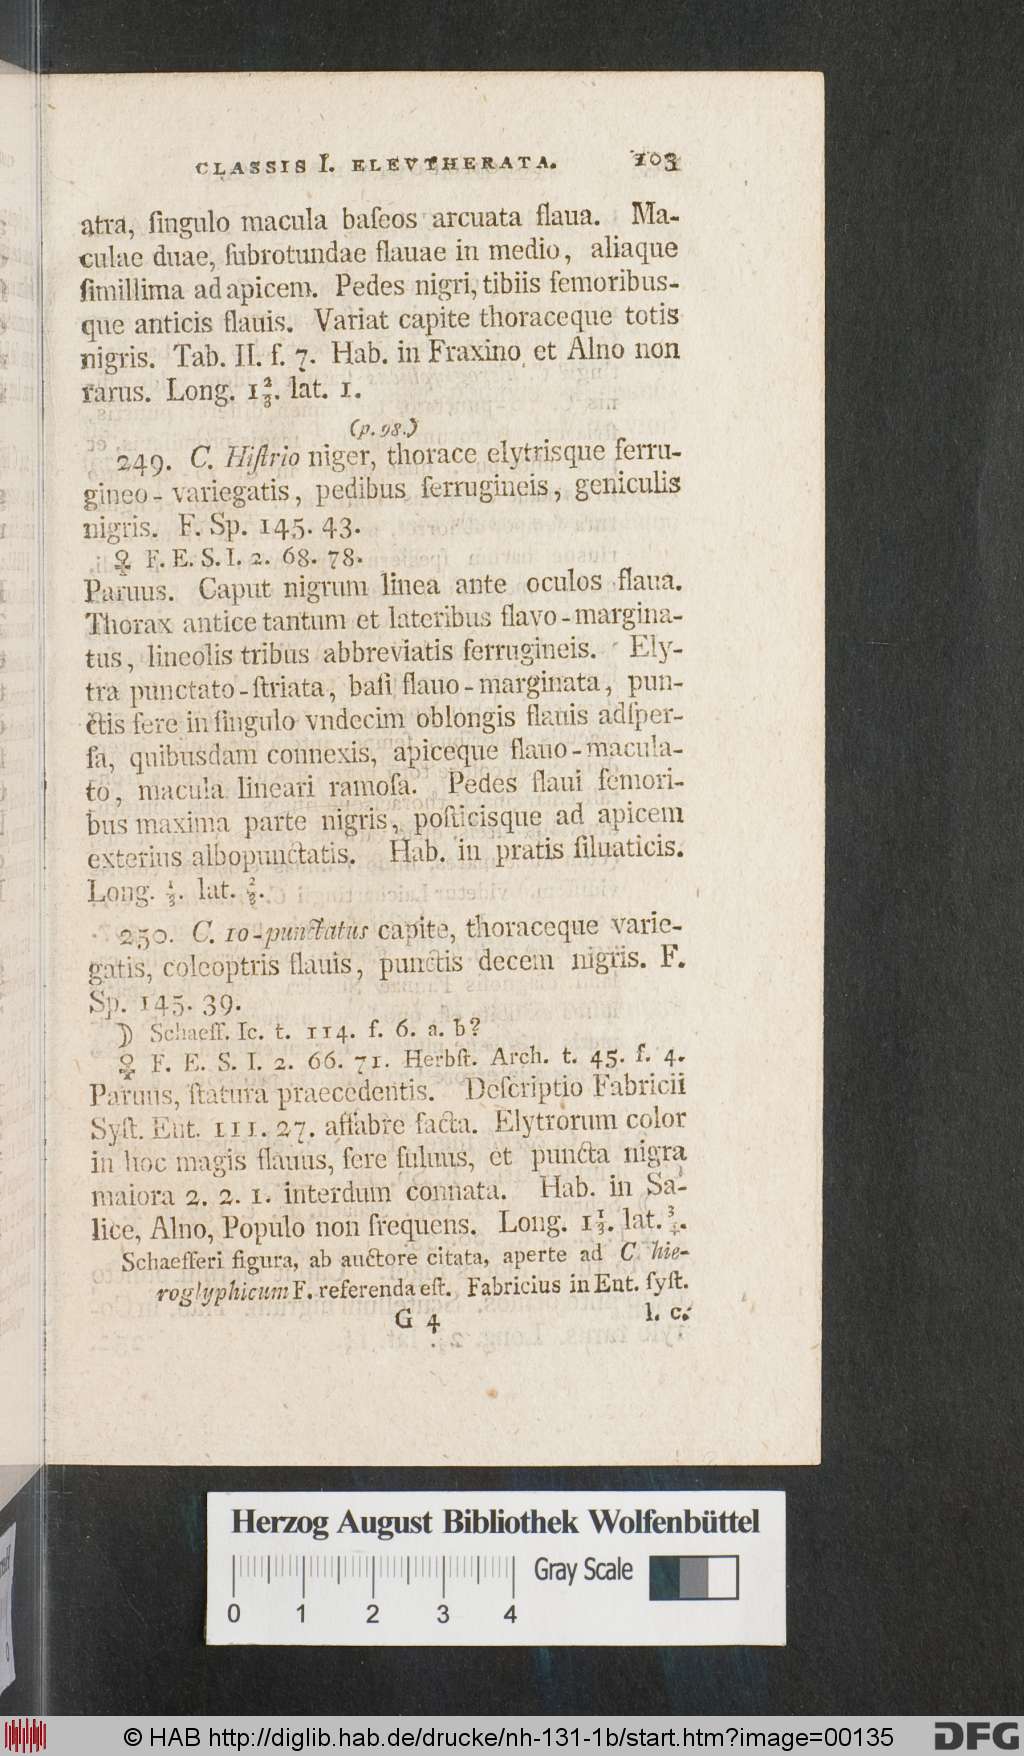 CLASSIS I. ELEVTHERATA. 103
atra, ſingulo macula baſeos arcuata flaua. Ma-
culae duae, ſubrotundae flauae in medio, aliaque
ſimillima ad apicem. Pedes nigri, tibiis femoribus-
que anticis flauis. Variat capite thoraceque totis
nigris. Tab. II. f. 7. Hab. in Fraxino et Alno non
rarus. Long. 1⅔. lat. 1.
(p. 98.)
249. C. Hiſtrio niger, thorace elytrisque ferru-
gineo-variegatis, pedibus ferrugineis, geniculis
nigris. F. Sp. 145. 43.
♀ F. E. S. I. 2. 68. 78.
Paruus. Caput nigrum linea ante oculos flaua.
Thorax antice tantum et lateribus flavo-margina-
tus, lineolis tribus abbreviatis ferrugineis. Ely-
tra punctato-ſtriata, baſi flauo-marginata, pun-
ctis fere in ſingulo vndecim oblongis flauis adſper-
ſa, quibusdam connexis, apiceque flauo-macula-
to, macula lineari ramoſa. Pedes flaui femori-
bus maxima parte nigris, poſticisque ad apicem
exterius albopunctatis. Hab. in pratis ſiluaticis.
Long. ⅓. lat. ⅔.
250. C. 10-punctatus capite, thoraceque varie-
gatis, coleoptris flauis, punctis decem nigris. F.
Sp. 145. 39.
) Schaeff. Ic. t. 114. f. 6. a. b?
♀ F. E. S. I. 2. 66. 71. Herbſt. Arch. t. 45. f. 4.
Paruus, ſtatura praecedentis. Deſcriptio Fabricii
Syſt. Ent. 111. 27. affabre facta. Elytrorum color
in hoc magis flauus, fere fuluus, et puncta nigra
maiora 2. 2. 1. interdum connata. Hab. in Sa-
lice, Alno, Populo non frequens. Long. 1⅓. lat. ¾.
Schaefferi figura, ab auctore citata, aperte ad C. hie-
roglyphicum F. referenda eſt. Fabricius in Ent. ſyſt.
G 4 l. c.
Herzog August Bibliothek Wolfenbüttel
Gray Scale
0 1 2 3 4
© HAB http://diglib.hab.de/drucke/nh-131-1b/start.htm?image=00135 DFG